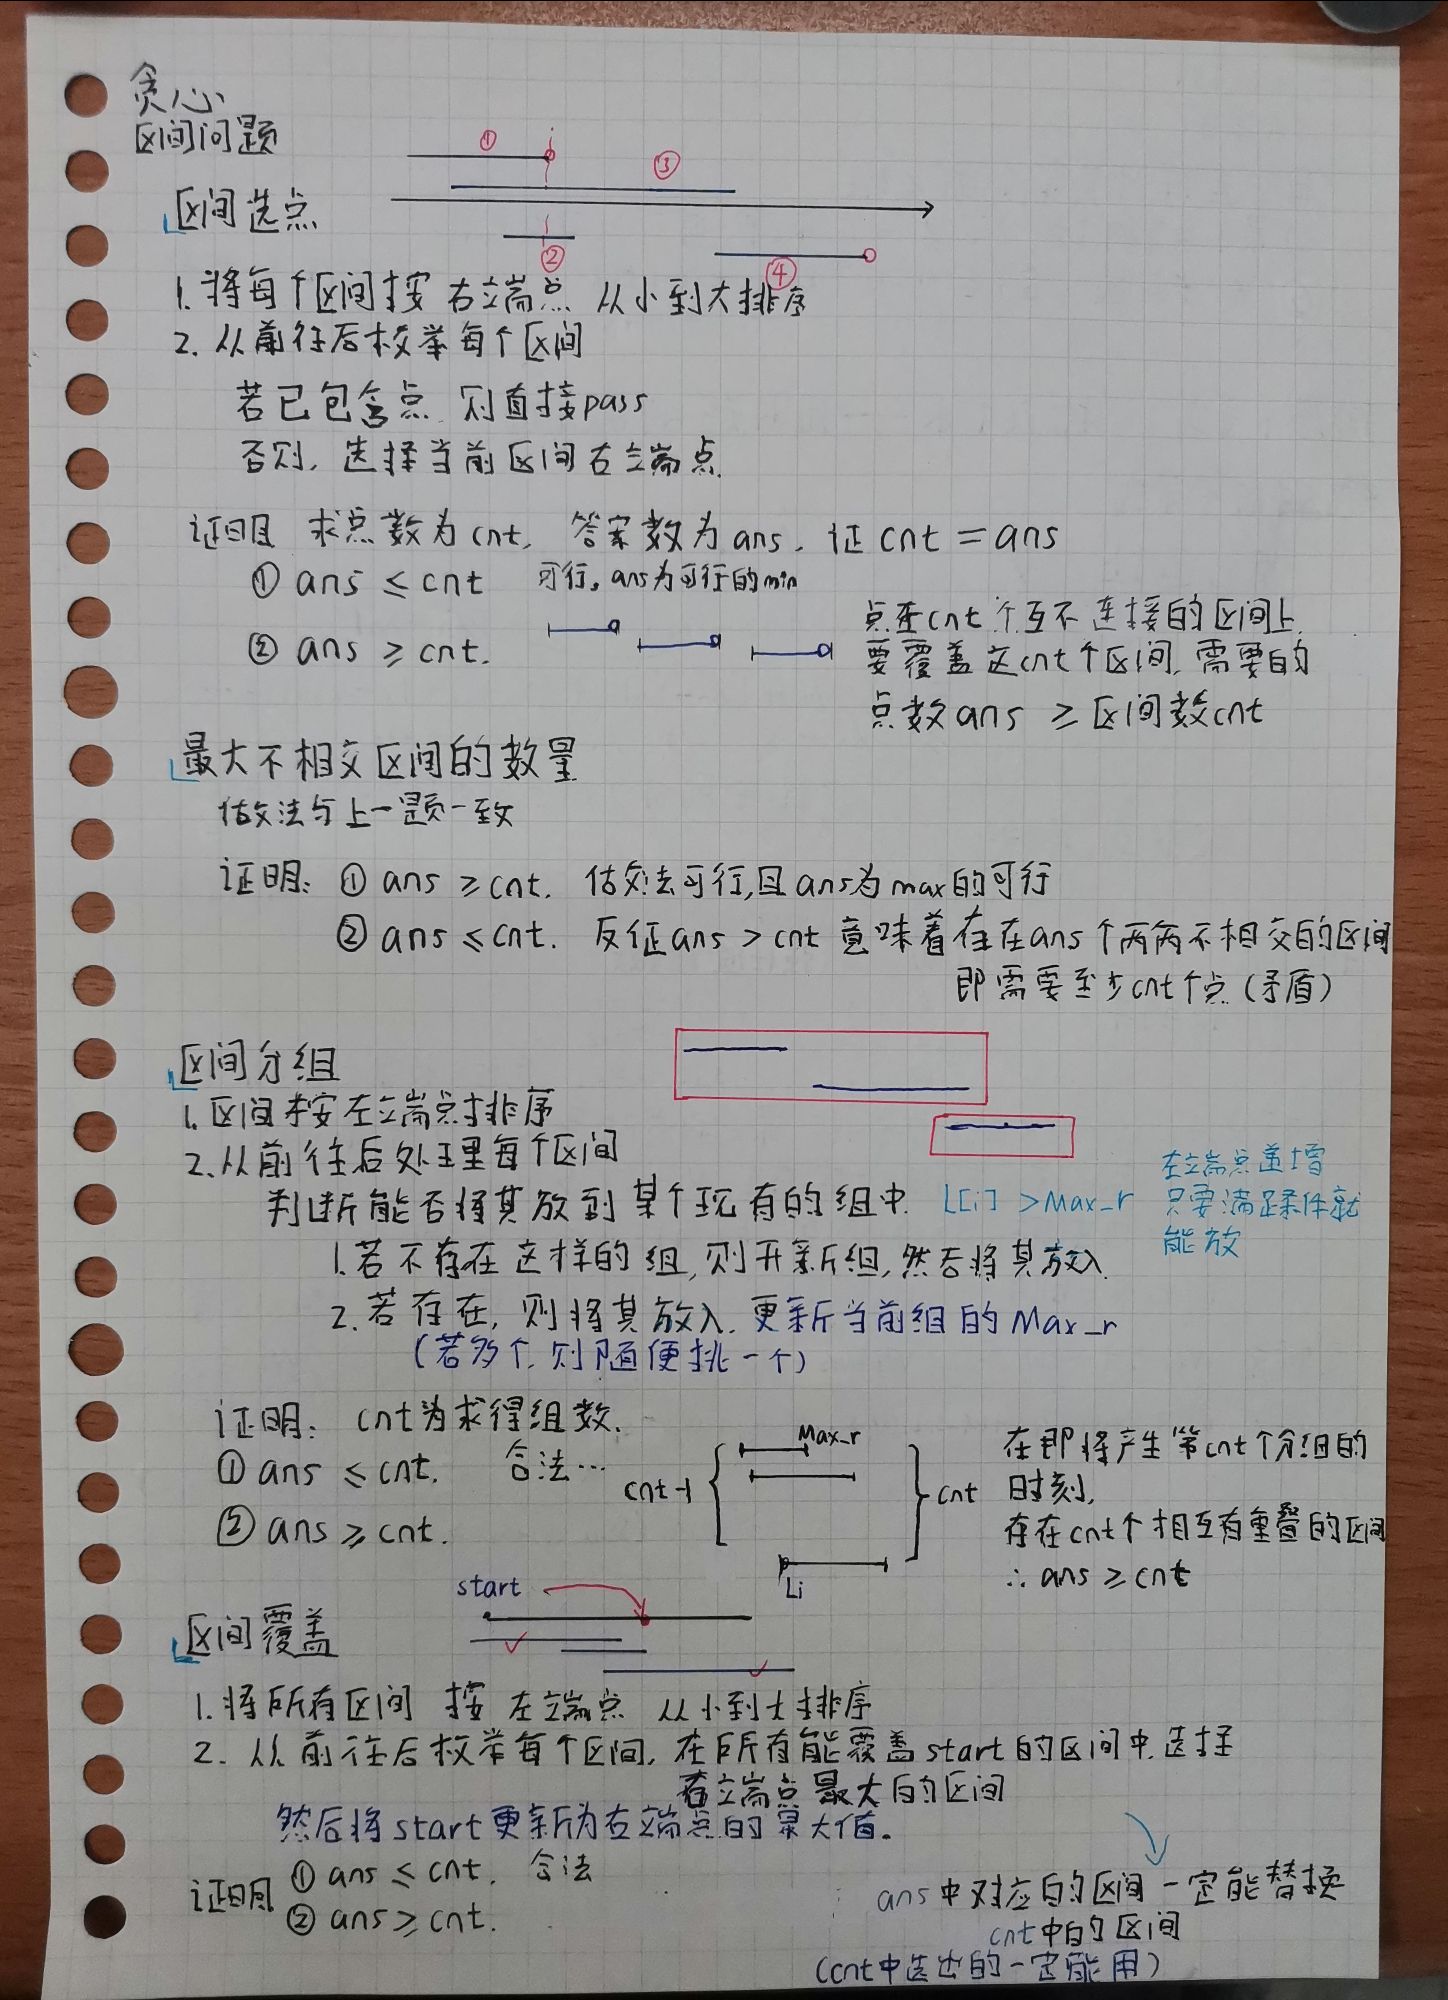 贪心
区间问题
① ③
区间选点
② ④
1. 将每个区间按右端点 从小到大排序
2. 从前往后枚举每个区间
若已包含点 则直接pass
否则, 选择当前区间右端点
证明 求点数为cnt, 答案数为ans, 证cnt=ans
① ans ≤ cnt 可行, ans为可行的min
② ans ≥ cnt.
点在cnt个互不连接的区间上.
要覆盖这cnt个区间, 需要的
点数ans ≥ 区间数cnt
最大不相交区间的数量
做法与上一题一致
证明: ① ans ≥ cnt. 做法可行,且ans为max的可行
② ans ≤ cnt. 反证ans > cnt 意味着存在ans个两两不相交的区间
即需要至少cnt个点 (矛盾)
区间分组
1. 区间按左端点排序
2. 从前往后处理每个区间
判断能否将其放到某个现有的组中. L[i] > Max_r
左端点递增
只要满足条件就
能放
1. 若不存在这样的组, 则开新组, 然后将其放入.
2. 若存在, 则将其放入. 更新当前组的Max_r
(若多个, 则随便挑一个)
证明: cnt为求得组数.
① ans ≤ cnt. 合法…
② ans ≥ cnt.
Max_r
cnt-1
cnt
Li
在即将产生第cnt个分组的
时刻,
存在cnt个相互有重叠的区间
∴ ans ≥ cnt
start
区间覆盖
1. 将所有区间 按 左端点 从小到大排序
2. 从前往后枚举每个区间, 在所有能覆盖start的区间中, 选择
右端点最大的区间
然后将start更新为右端点的最大值。
证明 ① ans ≤ cnt. 合法
② ans ≥ cnt.
ans中对应的区间一定能替换
cnt中的区间
(cnt中选出的一定能用)